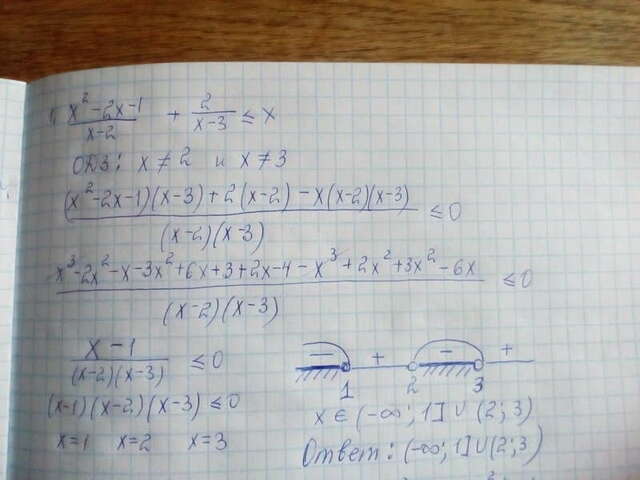 x²-2x-1/x-2 + 2/x-3 ≤ x
ОДЗ: x ≠ 2 и x ≠ 3
(x²-2x-1)(x-3)+2(x-2)-x(x-2)(x-3)/(x-2)(x-3) ≤0
x³-2x²-x-3x²+6x+3+2x-4-x³+2x²+3x²-6x/(x-2)(x-3) ≤0
x-1/(x-2)(x-3) ≤0
(x-1)(x-2)(x-3) ≤0
x=1 x=2 x=3
- + - +
1 2 3
x ∈ (-∞; 1] ∪ (2; 3)
Ответ: (-∞; 1] ∪ (2; 3)